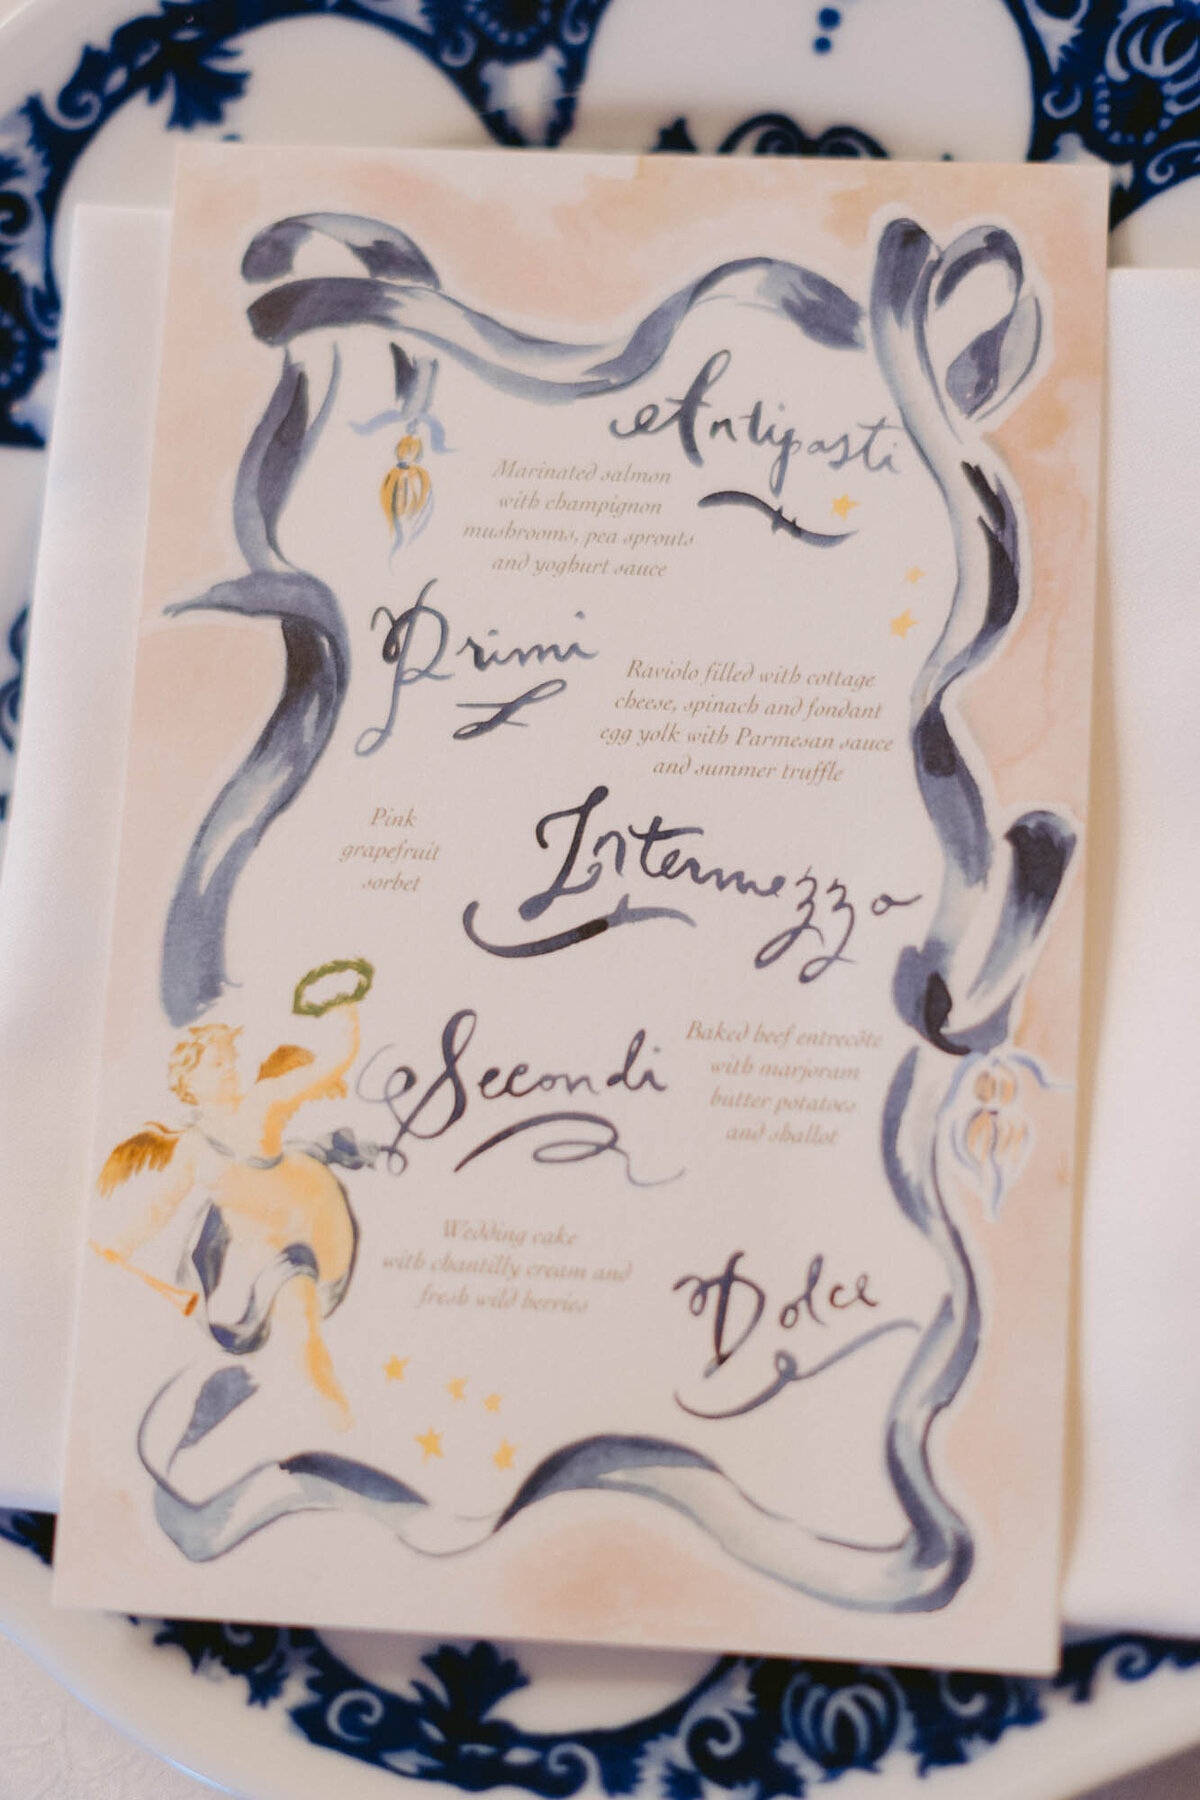 Antipasti
Marinated salmon
with champignon
mushrooms, pea sprouts
and yoghurt sauce
Primi
Raviolo filled with cottage
cheese, spinach and fondant
egg yolk with Parmesan sauce
and summer truffle
Intermezzo
Pink
grapefruit
sorbet
Secondi
Baked beef entrecôte
with marjoram
butter potatoes
and shallot
Dolce
Wedding cake
with chantilly cream and
fresh wild berries